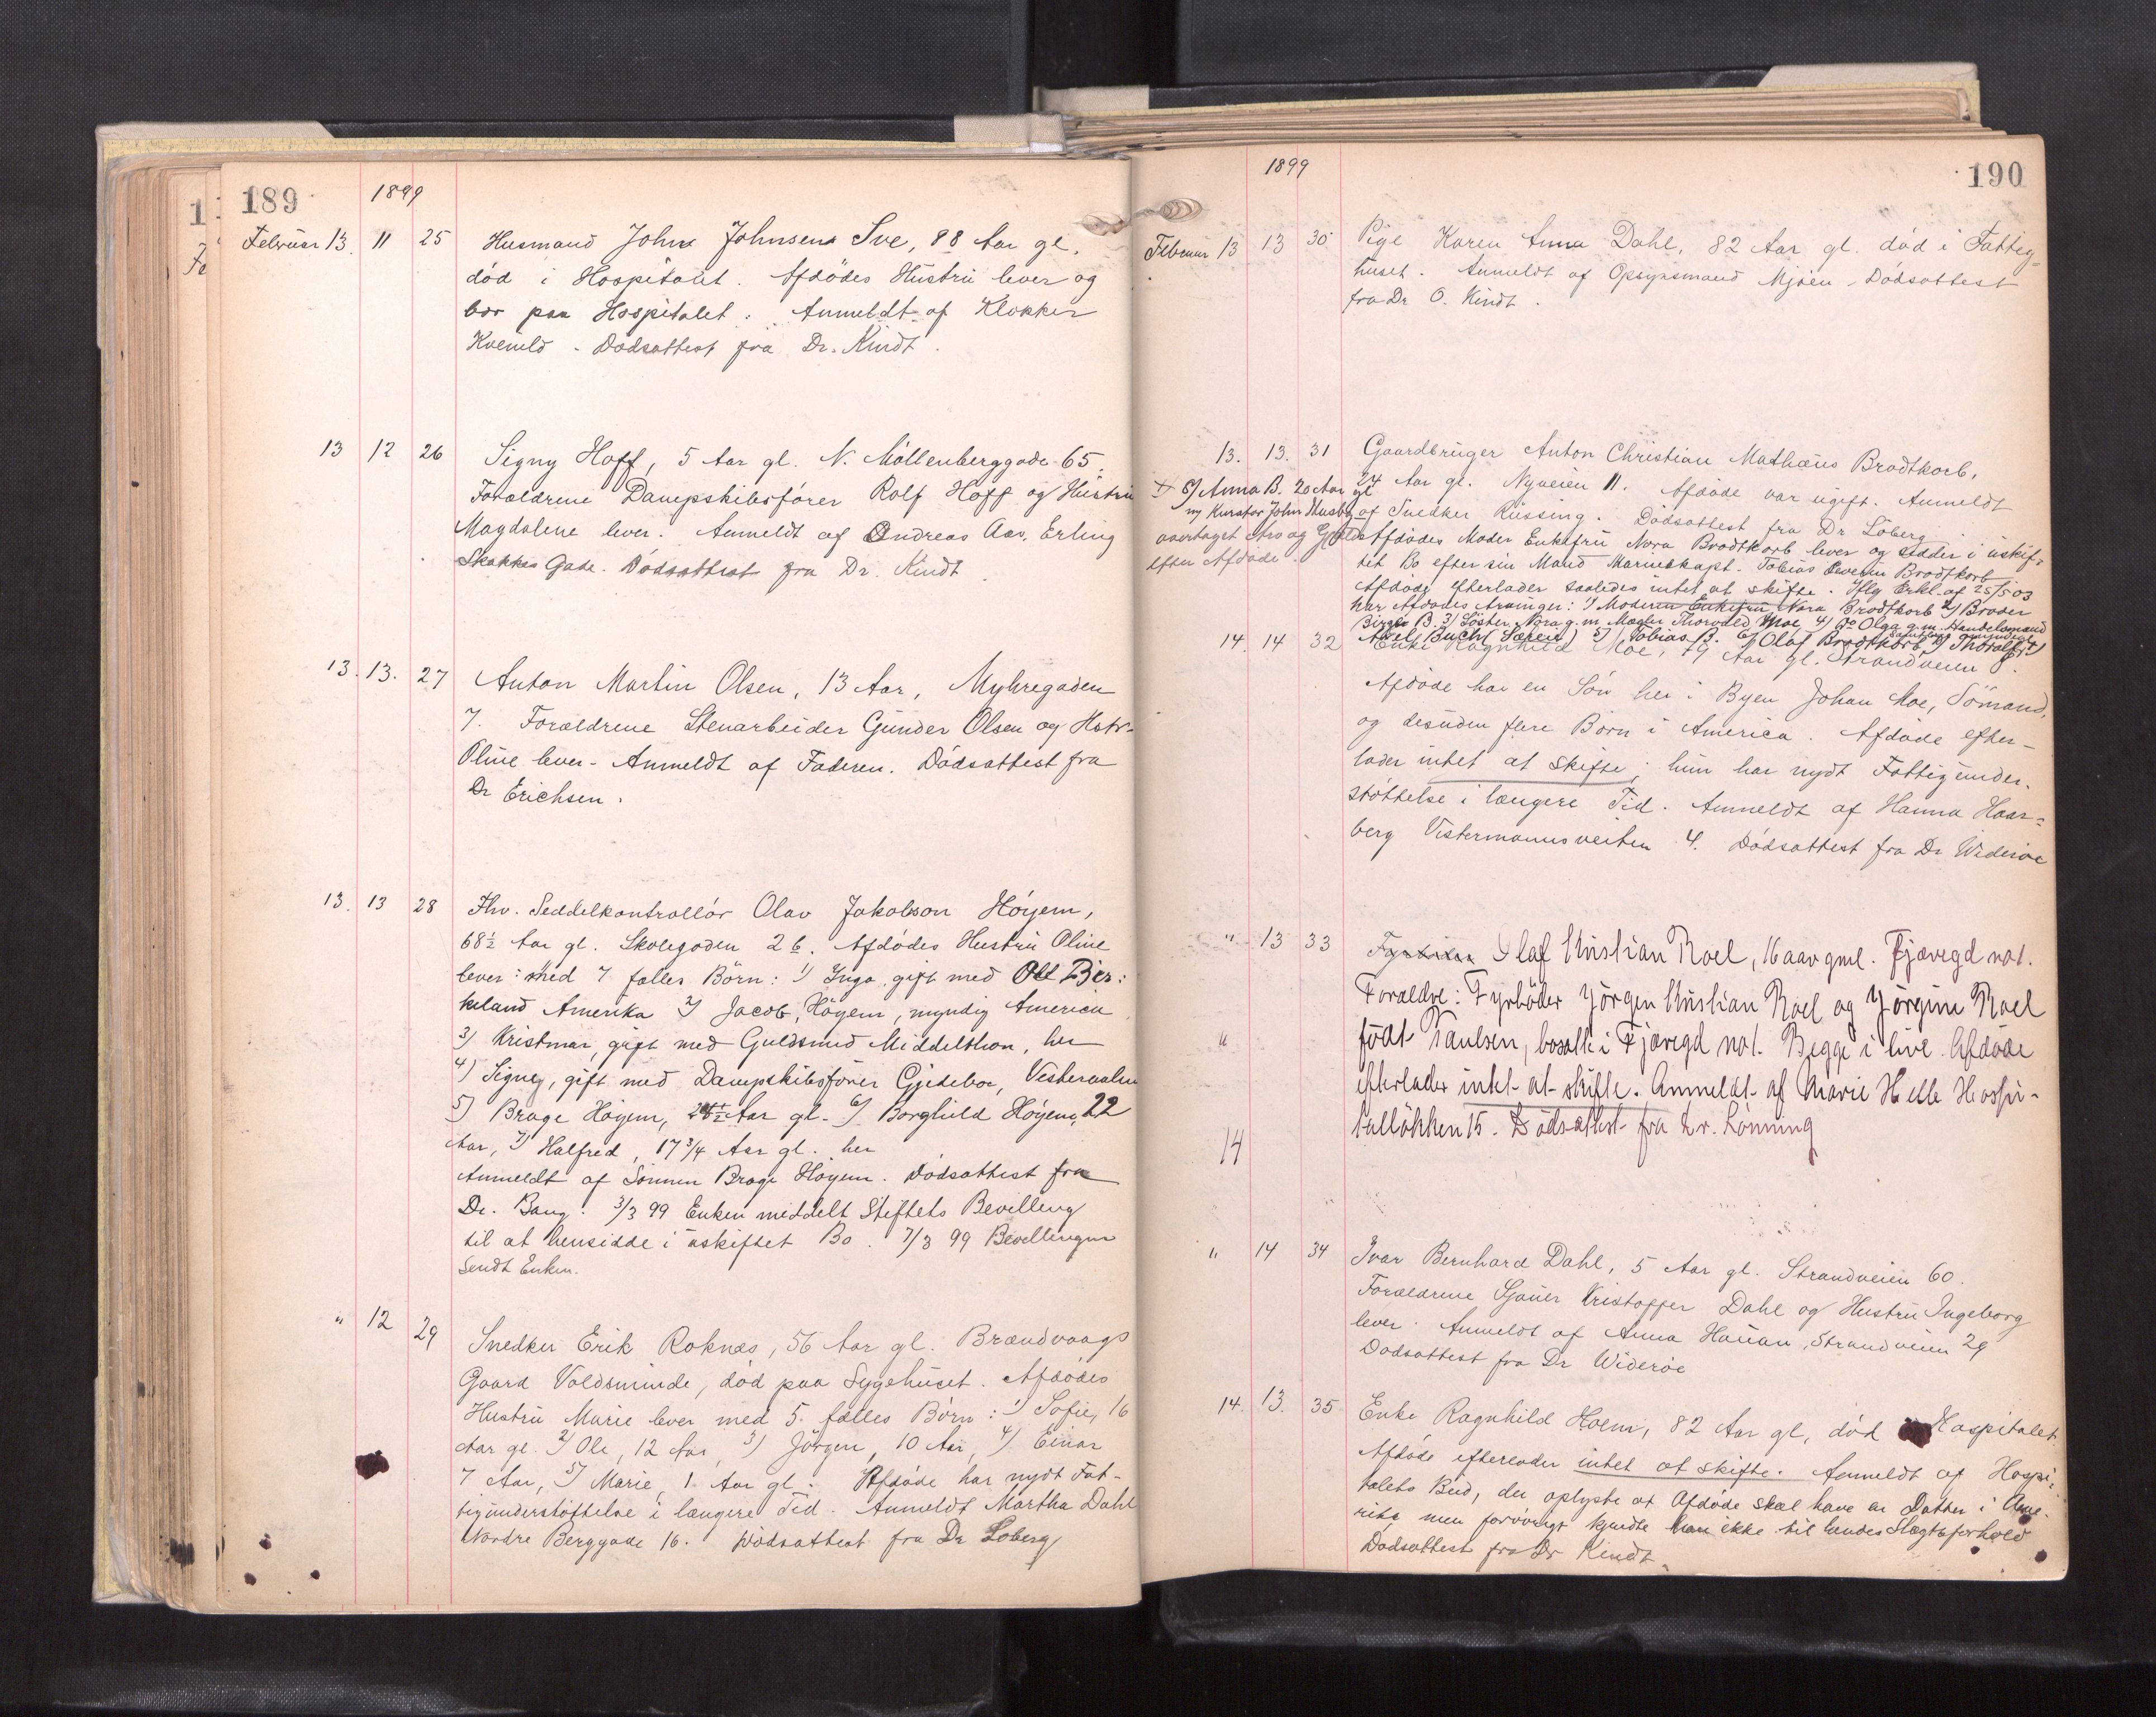 189
1899
Februar 13. 11 25 Husmand John Johnsen Sve, 88 Aar gl,
död i Hospitalet. Afdödes Hustru lever og
bor paa Hospitalet. Anmeldt af Klokker
Kvenild - Dödsattest fra Dr. Kindt.
13 12 26 Signy Hoff, 5 Aar gl. N. Möllenberggade 65.
Forældrene Dampskibsförer Rolf Hoff og Hustru
Magdalene lever. Anmeldt af Andreas Aas, Erling
Skakkes Gade. Dödsattest fra Dr. Kindt.
13. 13. 27 Anton Martin Olsen, 13 Aar, Myhregaden
7. Forældrene Stenarbeider Gunder Olsen og Hstr.
Oline lever - Anmeldt af Faderen. Dödsattest fra
Dr Erichsen.
13. 13 28 Fhv. Seddelkontrollör Olav Jakobson Höyem,
68½ Aar gl. Skolegaden 26. Afdödes Hustru Oline
lever med 7 fælles Börn: 1) Inga gift med Ole Bjer:
keland Amerika 2) Jacob Höyem, myndig America
3) Kristmar, gift med Guldsmed Middelthon, her
4) Signy, gift med Dampskibsförer Gjedeboe,
5) Brage Höyem, 24½ Aar gl. 6) Borghild Höyem, 22
Aar, 7) Halfred, 17 3/4 Aar gl. her
Anmeldt af Sönnen Brage Höyem. Dödsattest fra
Dr. Bang. 3/3 99 Enken meddelt Stiftets Bevilling
til at hensidde i uskiftet Bo. 7/3 99 Bevillingen
sendt Enken.
" 12 29 Snedker Erik Roknæs, 56 Aar gl. Brændvaags
Gaard Voldsminde, död paa Sygehuset. Afdödes
Hustru Marie lever med 5 fælles Börn: 1) Sofie, 16
Aar gl. 2) Ole, 12 Aar, 3) Jörgen, 10 Aar, 4) Einar
7 Aar, 5) Marie, 1 Aar gl. Afdöde har nydt Fat-
tigunderstöttelse i længere Tid. Anmeldt Martha Dahl
Nordre Berggade 16. Dödsattest fra Dr Loberg
190
1899
Februar 13 13 30 Pige Karen Anna Dahl, 82 Aar gl. död i Fattig-
huset. Anmeldt af Opsynsmand Mjöen - Dödsattest
fra Dr O. Kindt.
13. 13. 31 Gaardbruger Anton Christian Mathæus Brodtkorb,
24 Aar gl. Nyveien 11. Afdöde var ugift. Anmeldt
af Snedker Rissing. Dödsattest fra Dr Löberg
Afdödes Moder Enkefru Nora Brodtkorb lever og sidder i uskif-
tet Bo efter sin Mand Marinekapt. Tobias Severin Brodtkorb
Afdöde efterlader saaledes intet at skifte. Iflg Erkl. af 25/5 03
har Afdödes Arvinger: 1) Moderen Enkefru Nora Brodtkorb 2) Broder
Birger B. 3) Söster Nora g.m. Mægler Thorvald Moe, 4) do Olga g.m. Handelsmand
Axel Buch 5) Tobias B. 6) Olaf Brodtkorb, 7) Thoralf
8) Anna B. 20 Aar gl
ny Kurator John Musby
overtaget Arv og Gjeld
efter Afdöde.
14. 14 32 Enke Ragnhild Moe, 79 Aar gl. Strandveien 8.
Afdöde har en Sön her i Byen Johan Moe, Sömand,
og desuden flere Börn i America. Afdöde efter-
lader intet at skifte; hun har nydt Fattigunder-
stöttelse i længere Tid. Anmeldt af Hanna Haar=
berg Vistermannsveiten 4. Dödsattest fra Dr Wideröe
" 13 33 Olaf Kristian Roel, 16 aar gml. Fjæregd no 1.
Forældre: Fyrböder Jörgen Kristian Roel og Jörgine Roel
födt Paulsen, bosatte i Fjæregd no 1. Begge i live. Afdöde
efterlader intet at skifte. Anmeldt af Marie Helle Hospi-
talslökken 15. Dödsattest fra Dr. Lönning
"
14
" 14 34 Ivar Bernhard Dahl, 5 Aar gl. Strandveien 60.
Forældrene Sjauer Kristoffer Dahl og Hustru Ingeborg
lever. Anmeldt af Anna Hauan, Strandveien 29
Dödsattest fra Dr Wideröe
14. 13. 35 Enke Ragnhild Holm, 82 Aar gl, död Hospitalet.
Afdöde efterlader intet at skifte. Anmeldt af Hospi:
talets Bud, der oplyste at Afdöde skal have en Datter i Ame-
rika men forövrigt kjendte han ikke til hendes Slægtsforhold
Dödsattest fra Dr Kindt.